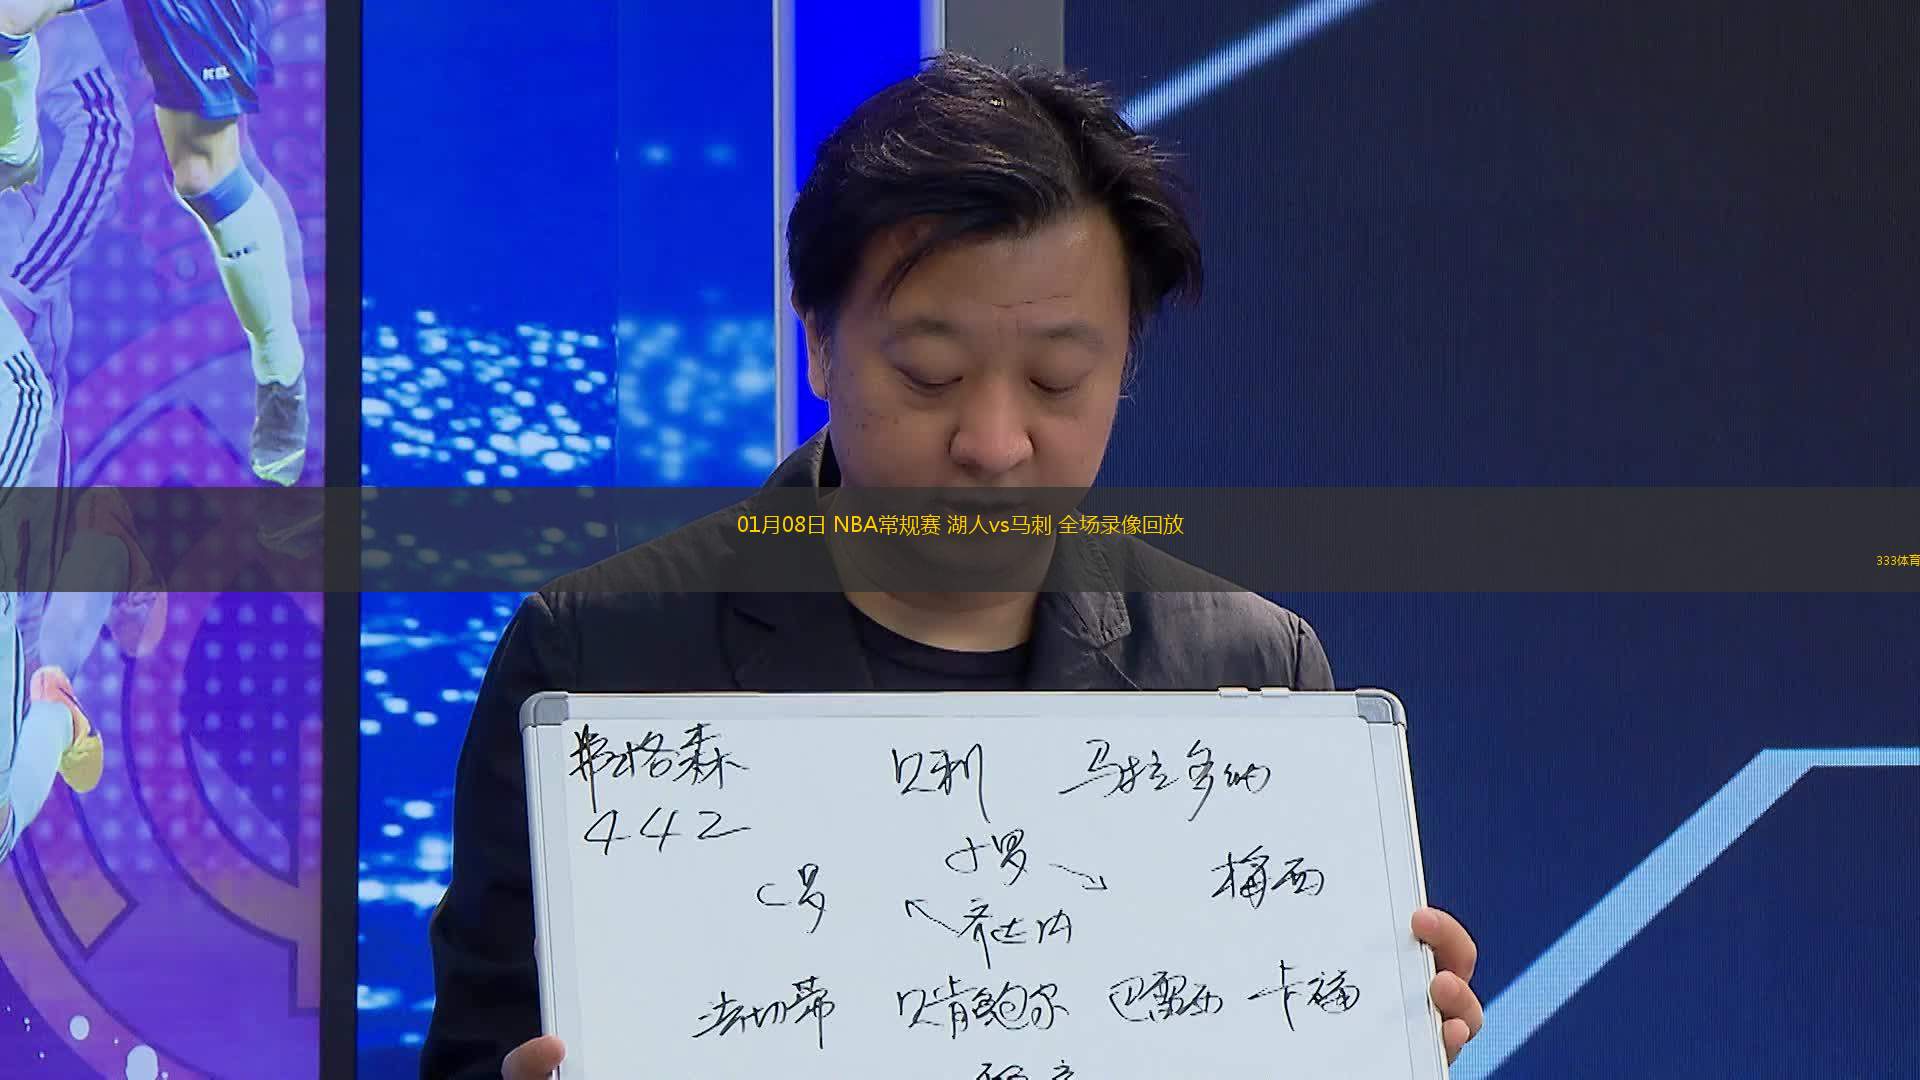 01月08日 NBA常规赛 湖人vs马刺 全场录像回放
333体育
弗格森 贝利 马拉多纳
442
小罗
C罗 梅西
齐达内
法切蒂 贝肯鲍尔 巴雷西 卡福